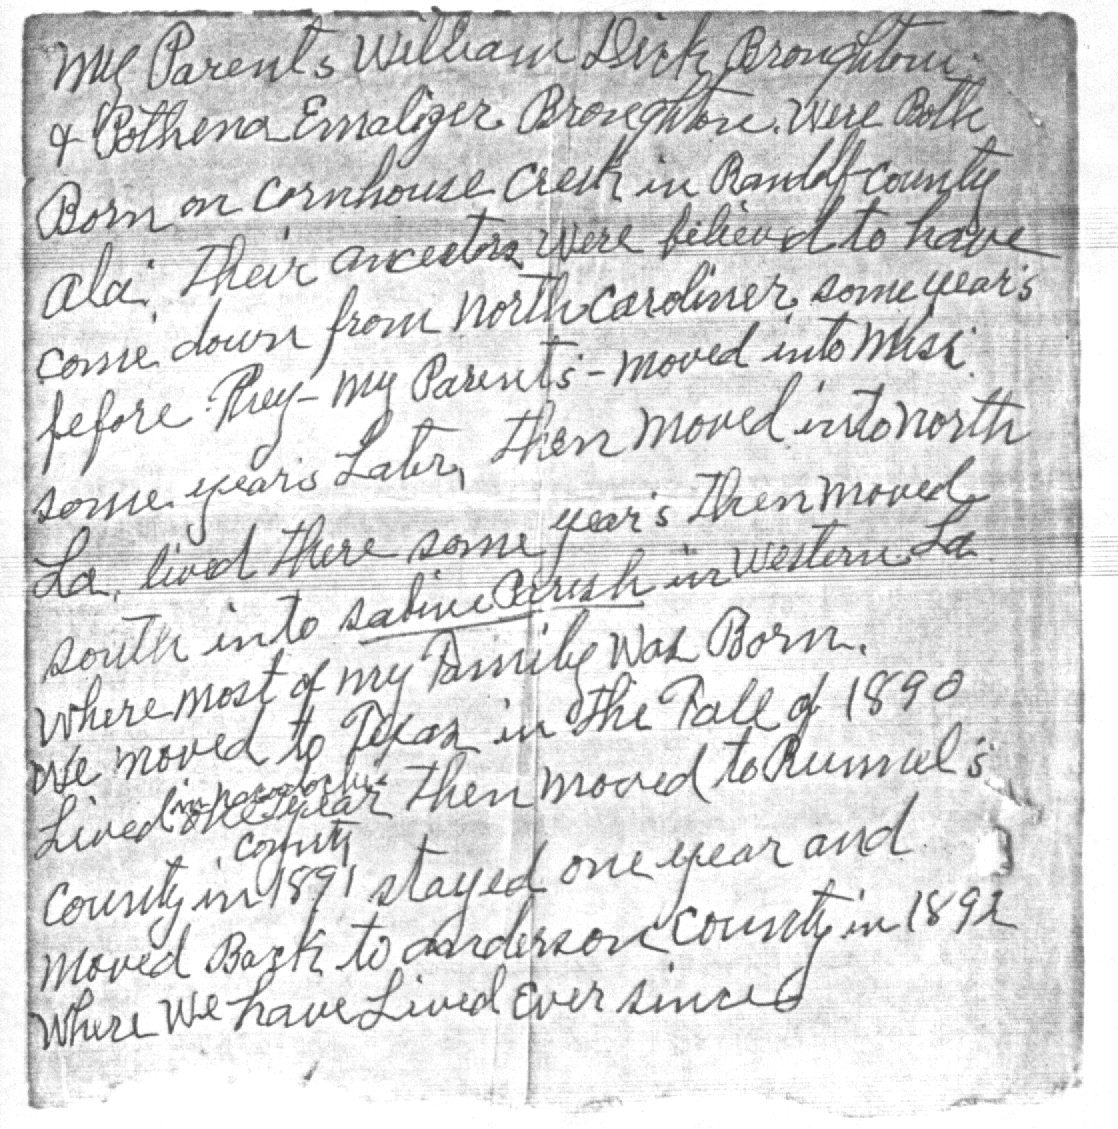 My Parents William Dirk Broughton
& Pothena Emalizer Broughton. Were Both
Born on Cornhouse Creek in Randlf County
Ala. Their ancestors Were believed to have
come down from North Caroliner some year's
before They - My Parent's - moved into Miss.
some year's Later, Then moved into North
La. lived There some year's Then moved
South into Sabine Parish in Western La
Where most of my Family Was Born.
We moved to Texas in The Fall of 1890
Lived one year Then moved to Runnel's
in County
County in 1891 stayed one year and
moved Back to anderson County in 1892
Where We have Lived Ever since